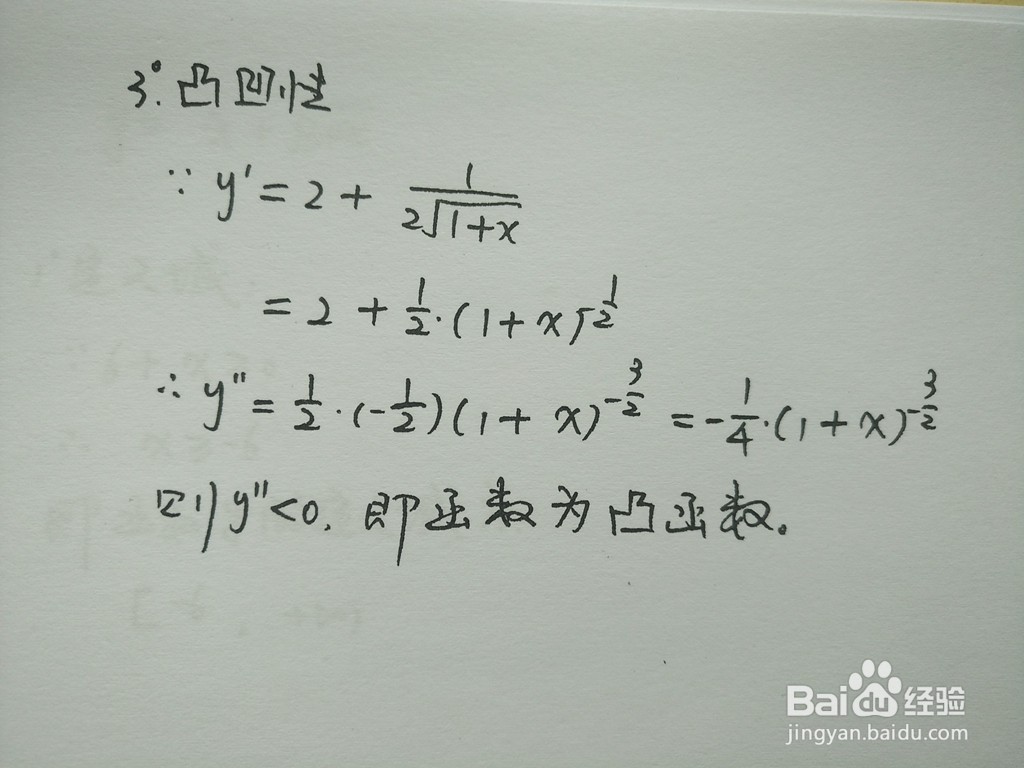 3°. 凸凹性
∵ y' = 2 + 1/(2√(1+x))
= 2 + 1/2·(1+x)^(-1/2)
∴ y" = 1/2·(-1/2)(1+x)^(-3/2) = -1/4·(1+x)^(-3/2)
则y"<0, 即函数为凸函数。
Bai du 经验
jingyan.baidu.com